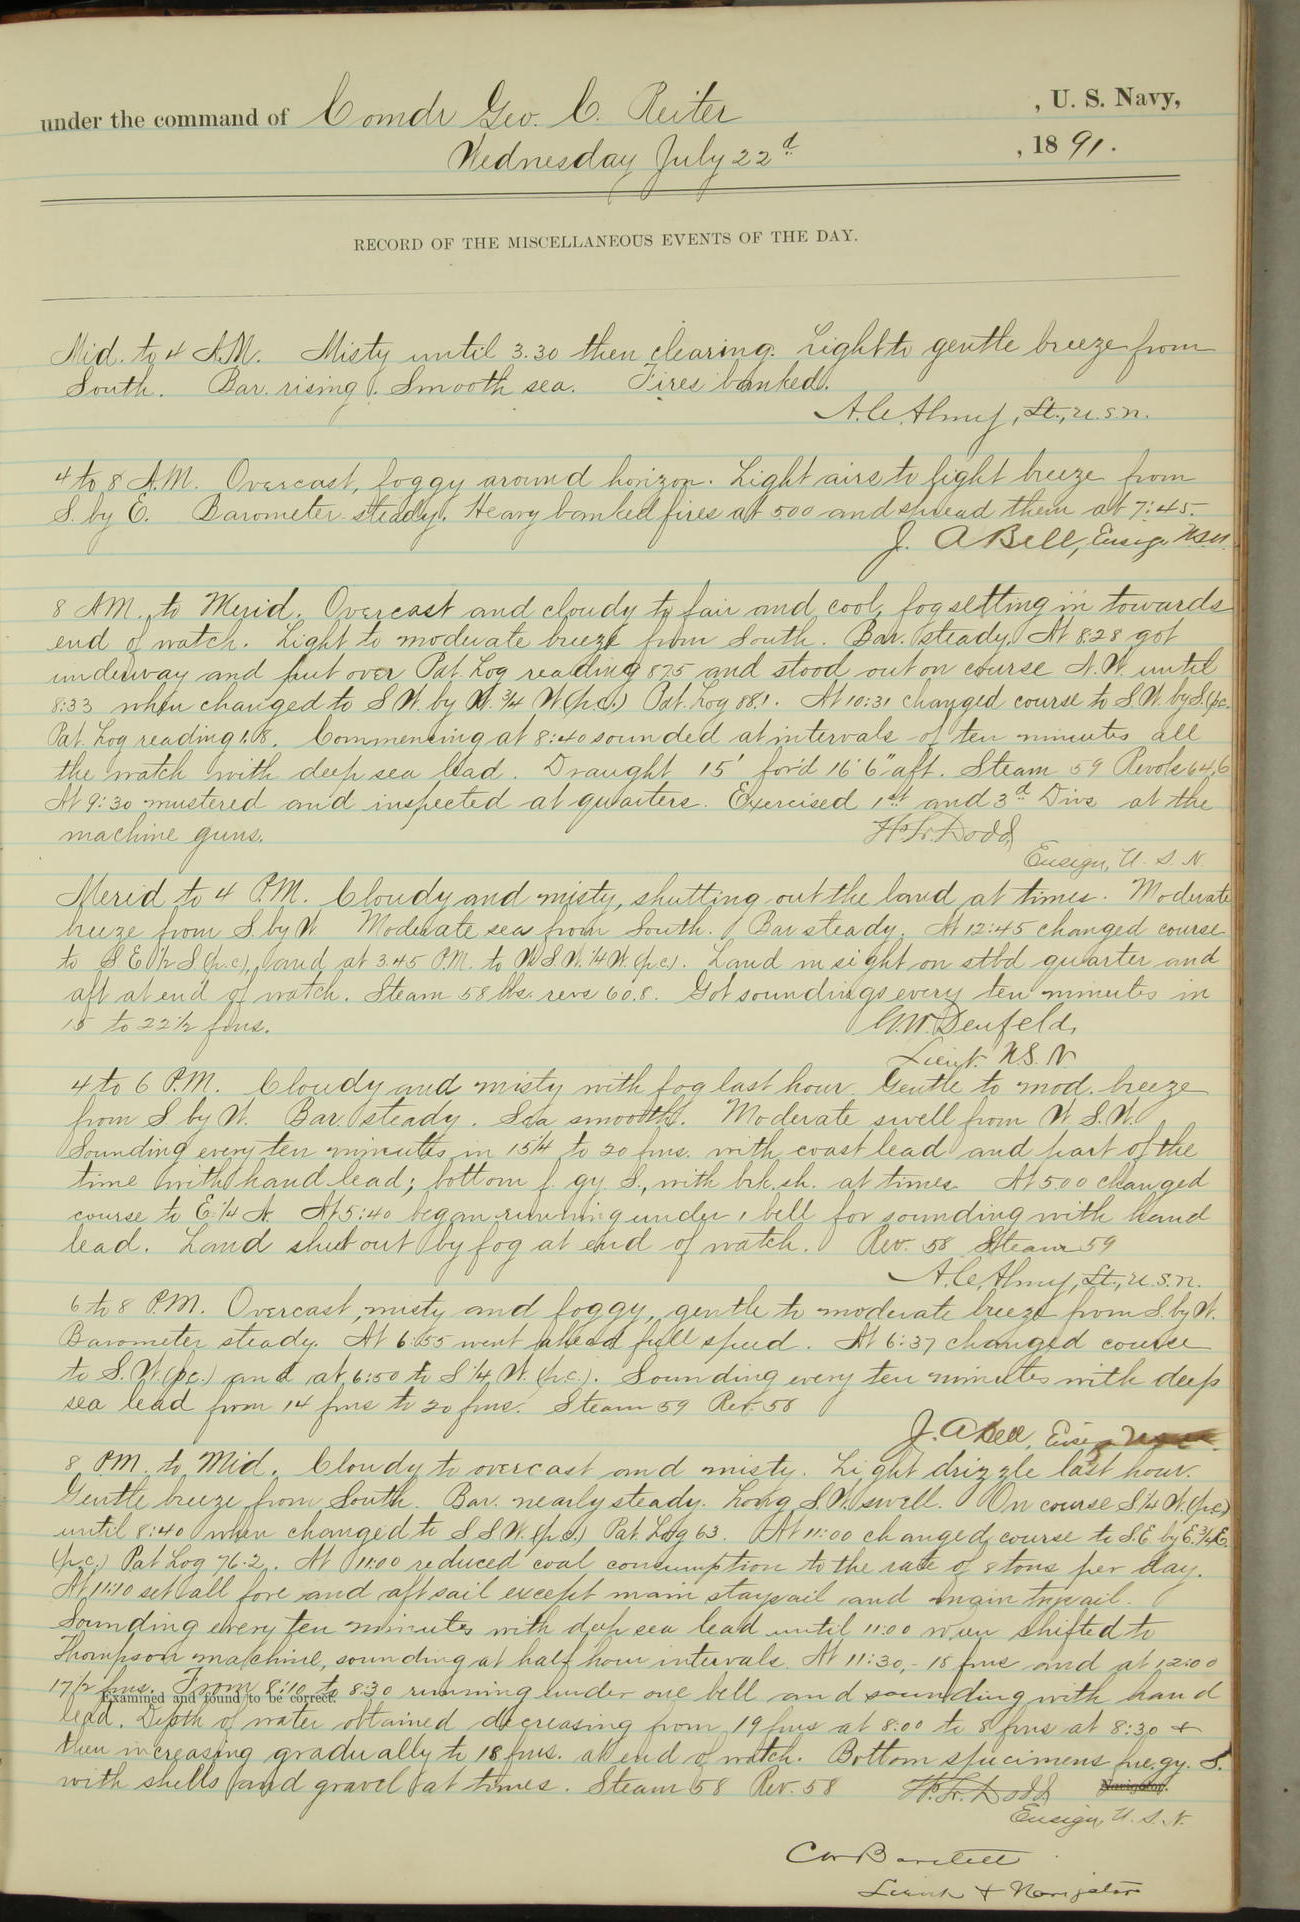 under the command of Comdr Geo. C. Reiter , U. S. Navy,
Wednesday July 22d , 1891.
RECORD OF THE MISCELLANEOUS EVENTS OF THE DAY.
Mid. to 4 A.M. Misty until 3.30 then clearing. Light to gentle breeze from
South. Bar. rising. Smooth sea. Fires banked.
A.C. Almy, Lt., U.S.N.
4 to 8 A.M. Overcast, foggy around horizon. Light airs to light breeze from
S. by E. Barometer steady. Heavy banked fires at 5.00 and spread them at 7:45.
J. A Bell, Ensign U.S.N.
8 AM. to Merid. Overcast and cloudy to fair and cool, fog setting in towards
end of watch. Light to moderate breeze from South. Bar. steady. At 8:28 got
underway and put over Pat. Log reading 87.5 and stood out on course N.W. until
8:33 when changed to S.W. by W. 3/4 W (p.c.) Pat. Log 88.1. At 10:31 changed course to S.W. by S. (p.c.
Pat. Log reading 1.8. Commencing at 8:40 sounded at intervals of ten minutes all
the watch with deep sea lead. Draught 15' for'd 16' 6" aft. Steam 59 Revols 64.6
At 9:30 mustered and inspected at quarters. Exercised 1st and 3d Divs at the
machine guns. Dodd
Ensign, U. S. N.
Merid to 4 P.M. Cloudy and misty, shutting out the land at times. Moderate
breeze from S. by W Moderate sea from South. Bar steady. At 12:45 changed course
to S E 1/2 S (p.c.), and at 3.45 P.M. to W S W. 1/4 W. (p.c.). Land in sight on stbd quarter and
aft at end of watch. Steam 58 lbs. revs 60.8. Got soundings every ten minutes in
15 to 22 1/2 fms. G.W. Denfeld,
Lieut. U.S.N
4 to 6 P.M. Cloudy and misty with fog last hour Gentle to mod. breeze
from S by W. Bar steady. Sea smooth. Moderate swell from W. S.W.
Sounding every ten minutes in 15 1/4 to 20 fms. with coast lead and part of the
time with hand lead; bottom f. gy. S., with brk. sh. at times. At 5.00 changed
course to E. 1/4 N. At 5:40 began running under 1 bell for sounding with hand
lead. Land shut out by fog at end of watch. Rev. 58 Steam 59
A.C. Almy, Lt., U.S.N.
6 to 8 P.M. Overcast, misty and foggy, gentle to moderate breeze from S. by W.
Barometer steady. At 6:55 went ahead full speed. At 6:37 changed course
to S.W (p.c.) and at 6:50 to S 1/4 W. (p.c.). Sounding every ten minutes with deep
sea lead from 14 fms to 20 fms. Steam 59 Rev. 58
J. A Bell, Ensign
8 PM. to Mid. Cloudy to overcast and misty. Light drizzle last hour.
Gentle breeze from South. Bar. nearly steady. Long S.W. swell. On course S 1/4 W. (p.c.)
until 8:40 when changed to S S W. (p.c.) Pat. Log 63. At 11:00 changed course to S.E by E. 3/4 E.
(p.c.) Pat Log 76.2. At 11:00 reduced coal consumption to the rate of 8 tons per day.
At 11:10 set all fore and aft sail except main staysail and main trysail.
Sounding every ten minutes with deep sea lead until 11:00 when shifted to
Thompson machine, sounding at half hour intervals. At 11:30, - 18 fms and at 12:00
17 1/2 fms. From 8:10 to 8:30 running under one bell and sounding with hand
Examined and found to be correct.
lead. Depth of water obtained decreasing from 19 fms at 8:00 to 8 fms at 8:30 &
then increasing gradually to 18 fms. at end of watch. Bottom specimens fne. gy. S.
with shells and gravel at times. Steam 58 Rev. 58 Dodd Navigator.
Ensign, U. S. N.
C W Bartlett
Lieut & Navigator